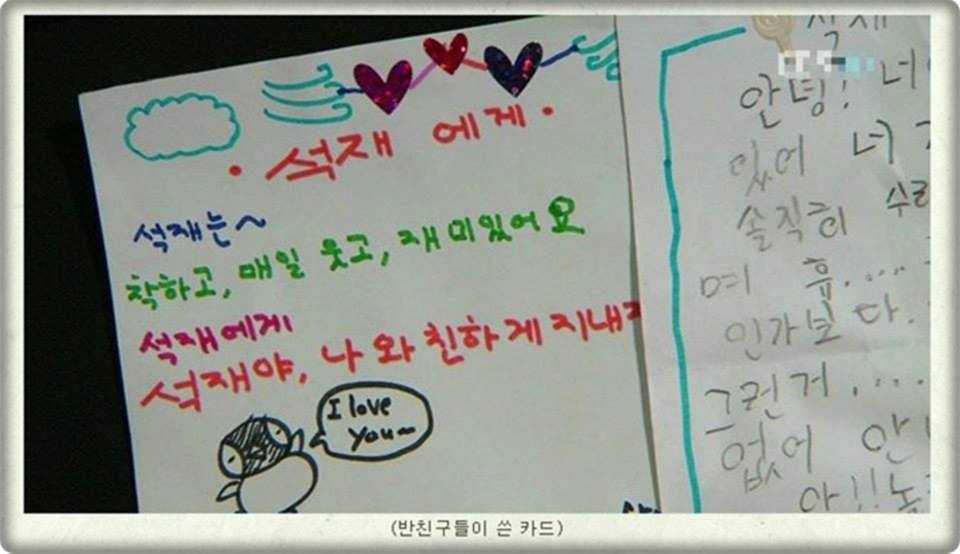 · 석재 에게 ·
석재는~
착하고, 매일 웃고, 재미있어요
석재에게
석재야, 나와 친하게 지내
I love
You~
석재
안녕! 너
있어 너
솔직히
며 휴....
인가보다.
그런거....
없어
아!!
(반친구들이 쓴 카드)